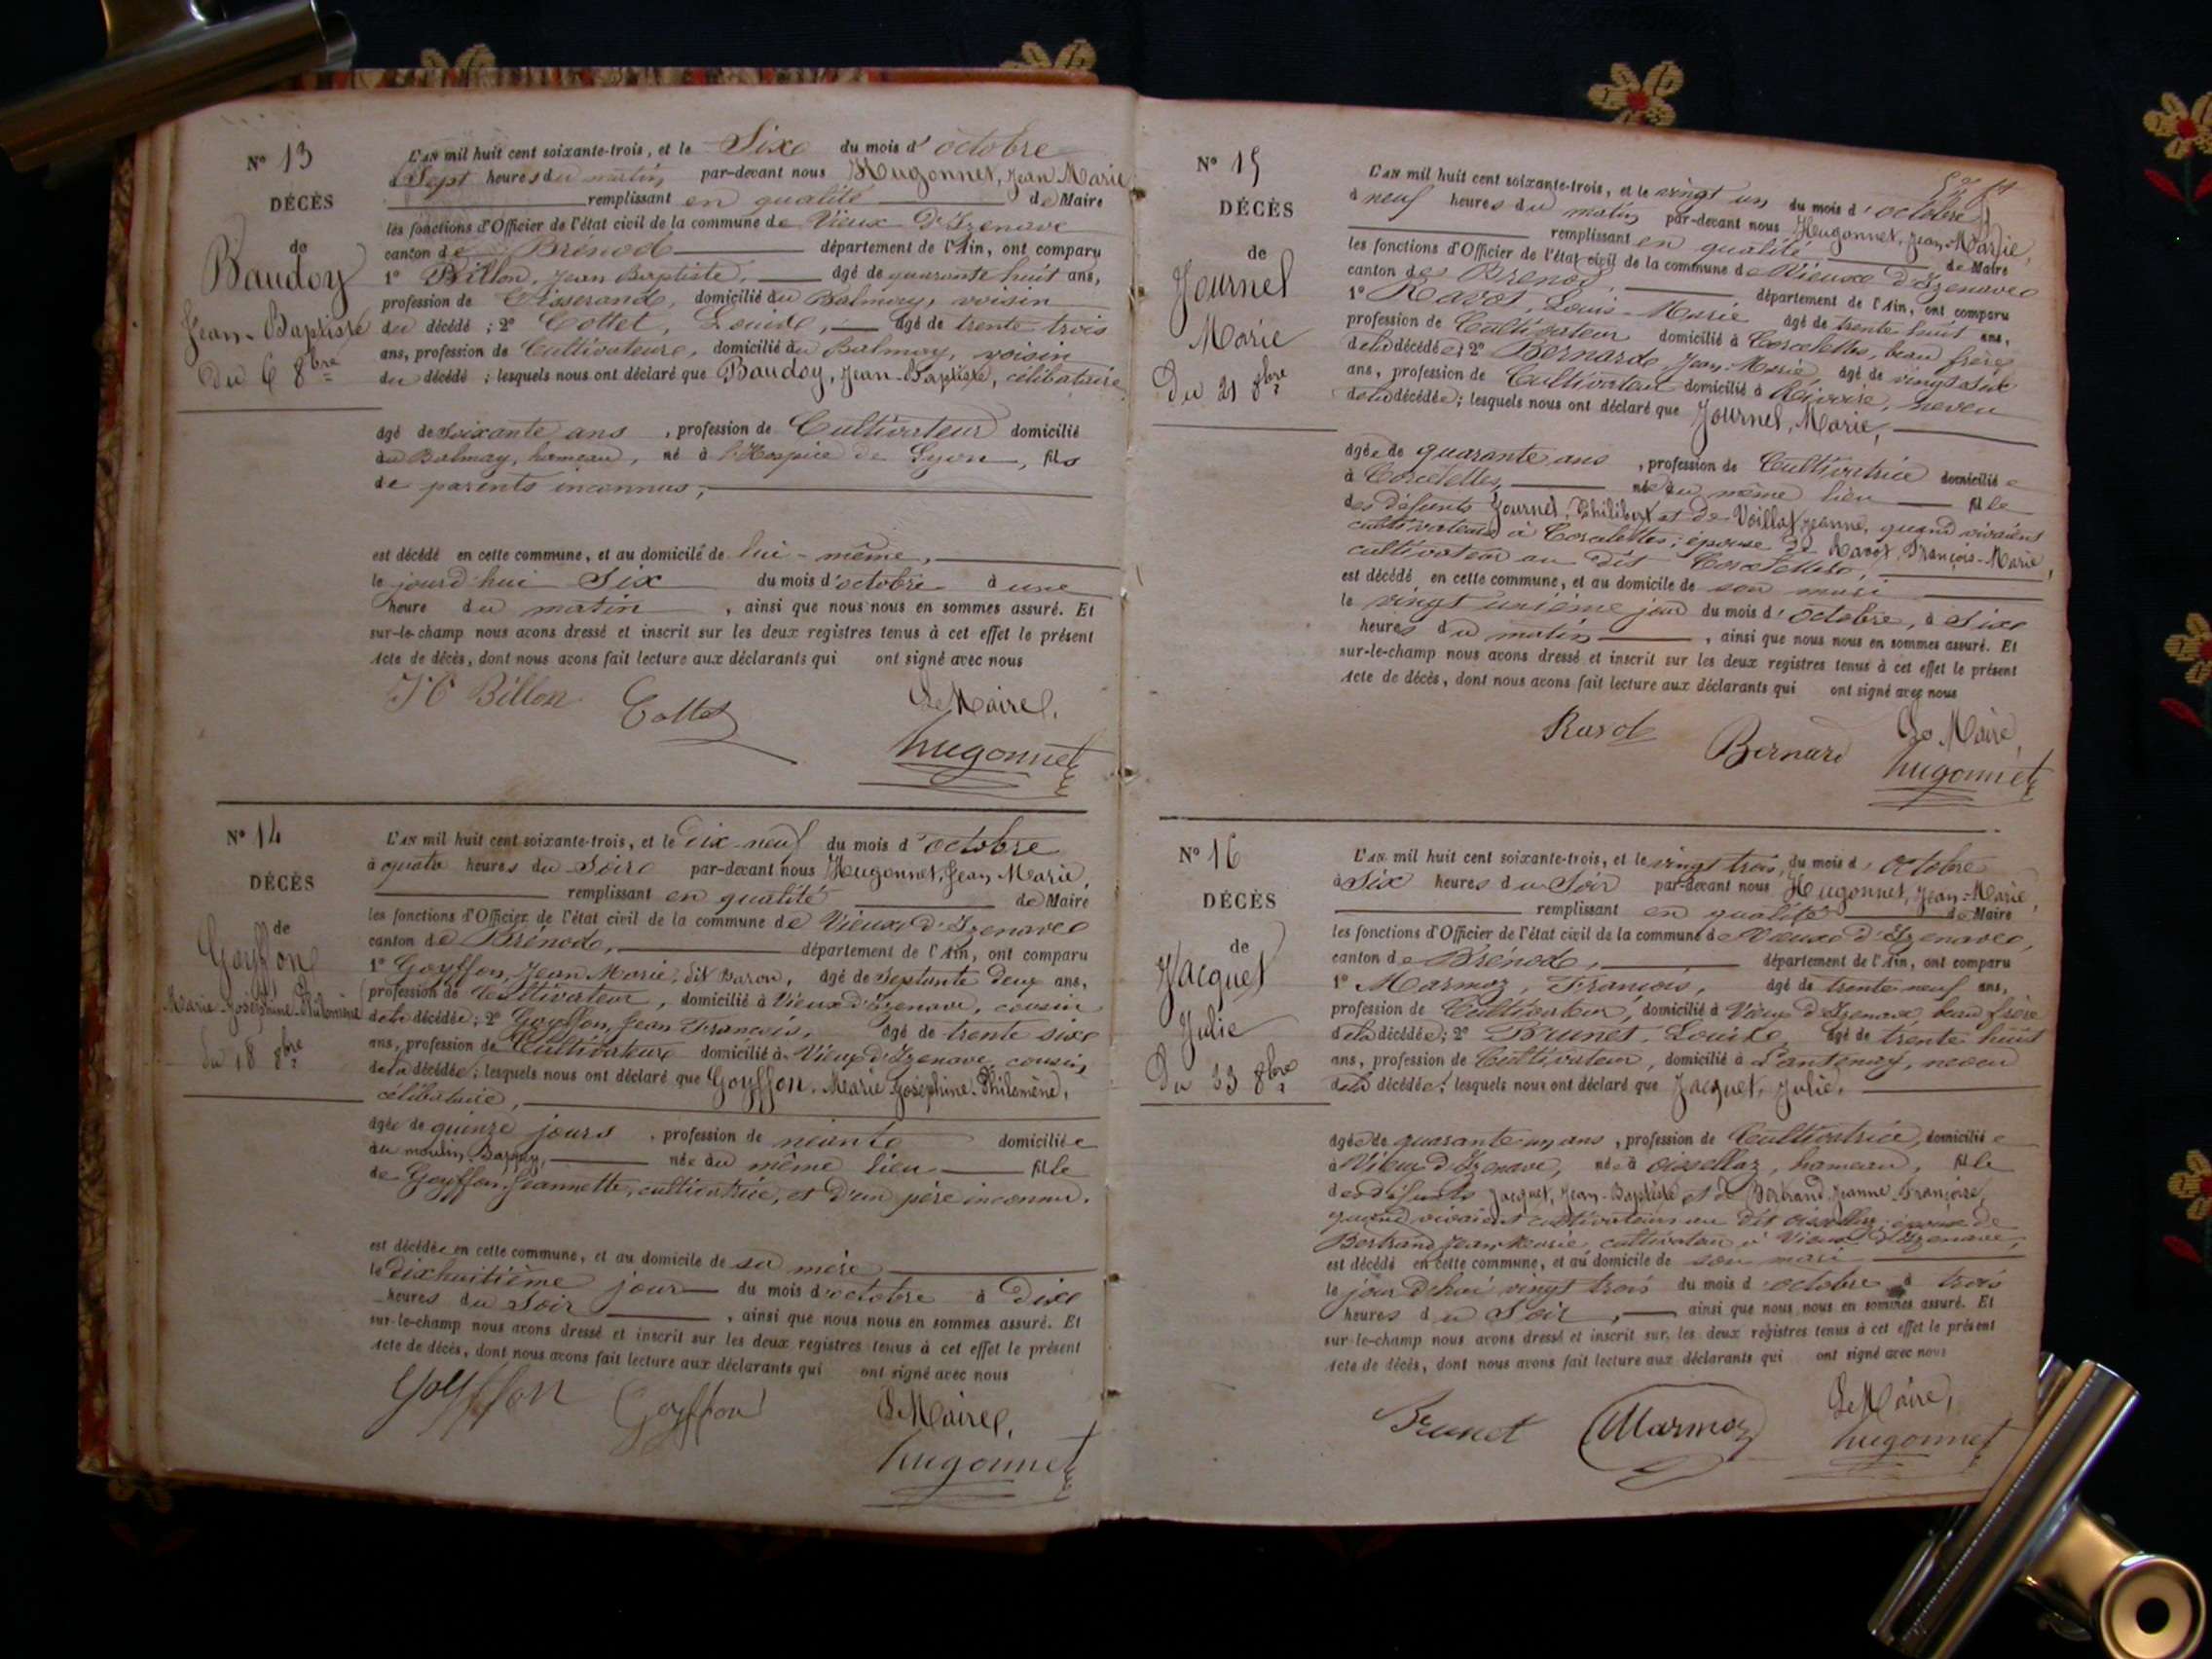 N° 13
DÉCÈS
de
Baudoy
Jean-Baptiste
Du 6 8bre
L'AN mil huit cent soixante-trois, et le Six du mois d'octobre
à Sept heures du matin par-devant nous Hugonnet, Jean Marie
remplissant en qualité de Maire
les fonctions d'Officier de l'état civil de la commune de Vieux D'Izenave
canton de Brénod département de l'Ain, ont comparu
1° Billon, Jean Baptiste, âgé de quarante huit ans,
profession de Tisserand, domicilié au Balmay, voisin
du décédé ; 2° Cottet, Louis, âgé de trente trois
ans, profession de Cultivateur, domicilié au Balmay, voisin
du décédé ; lesquels nous ont déclaré que Baudoy, Jean-Baptiste, célibataire
âgé de soixante ans , profession de Cultivateur domicilié
au Balmay, hameau, né à l'Hospice de Lyon, fils
de parents inconnus,
est décédé en cette commune, et au domicile de lui-même,
le jourd'hui Six du mois d'octobre à une
heure du matin , ainsi que nous nous en sommes assuré. Et
sur-le-champ nous avons dressé et inscrit sur les deux registres tenus à cet effet le présent
Acte de décès, dont nous avons fait lecture aux déclarants qui ont signé avec nous
Billon Cottet Le Maire,
hugonnet
N° 14
DÉCÈS
de
Goyffon
Marie-Joséphine-Philomène
du 18 8bre
L'AN mil huit cent soixante-trois, et le dix-neuf du mois d'octobre
à quatre heures du Soir par-devant nous Hugonnet, Jean Marie,
remplissant en qualité de Maire
les fonctions d'Officier de l'état civil de la commune de Vieux d'Izenave
canton de Brénod, département de l'Ain, ont comparu
1° Goyffon, Jean Marie, dit Baron, âgé de Septante deux ans,
profession de Cultivateur, domicilié à Vieux d'Izenave, cousin
de la décédée ; 2° Goyffon, Jean François, âgé de trente six
ans, profession de Cultivateur domicilié à Vieux d'Izenave, cousin
de la décédée ; lesquels nous ont déclaré que Goyffon, Marie Joséphine-Philomène,
célibataire,
âgée de quinze jours , profession de néante domiciliée
au moulin née au même lieu fille
de Goyffon Jeannette, cultivatrice, et d'un père inconnu.
est décédée en cette commune, et au domicile de sa mère
le dixhuitième jour du mois d'octobre à dix
heures du Soir , ainsi que nous nous en sommes assuré. Et
sur-le-champ nous avons dressé et inscrit sur les deux registres tenus à cet effet le présent
Acte de décès, dont nous avons fait lecture aux déclarants qui ont signé avec nous
Goyffon Goyffon Le Maire,
hugonnet
N° 15
DÉCÈS
de
Journet
Marie
Du 21 8bre
L'AN mil huit cent soixante-trois, et le vingt un du mois d'octobre
à neuf heures du matin par-devant nous Hugonnet, Jean-Marie,
remplissant en qualité de Maire
les fonctions d'Officier de l'état civil de la commune de Vieux d'Izenave
canton de Brénod, département de l'Ain, ont comparu
1° Ravot, Louis-Marie âgé de trente huit ans,
profession de Cultivateur domicilié à Corcelettes, beau frère
de la décédée ; 2° Bernard, Jean-Marie, âgé de vingt six
ans, profession de Cultivateur domicilié à Rivoire, neveu
de la décédée ; lesquels nous ont déclaré que Journet, Marie,
âgée de quarante ans , profession de Cultivatrice domiciliée
à Corcelettes, née au même lieu fille
des défunts Journet, Philibert et de Voillat Jeanne, quand vivaient
cultivateurs à Corcelettes ; épouse de Ravot, François-Marie,
cultivateur au dit Corcelettes,
est décédé en cette commune, et au domicile de son mari
le vingt unième jour du mois d'octobre, à Six
heures du matin , ainsi que nous nous en sommes assuré. Et
sur-le-champ nous avons dressé et inscrit sur les deux registres tenus à cet effet le présent
Acte de décès, dont nous avons fait lecture aux déclarants qui ont signé avec nous
Ravot Bernard Le Maire,
hugonnet
N° 16
DÉCÈS
de
Jacquet
Julie
Du 23 8bre
L'AN mil huit cent soixante-trois, et le vingt trois du mois d'octobre
à Six heures du Soir par-devant nous Hugonnet, Jean-Marie,
remplissant en qualité de Maire
les fonctions d'Officier de l'état civil de la commune de Vieux d'Izenave,
canton de Brénod, département de l'Ain, ont comparu
1° Marmoz, François, âgé de trente neuf ans,
profession de Cultivateur, domicilié à Vieux d'Izenave, beau frère
de la décédée ; 2° Brunet, Louis, âgé de trente huit
ans, profession de Cultivateur, domicilié à Lantenay, neveu
de la décédée ; lesquels nous ont déclaré que Jacquet, Julie,
âgée de quarante un ans , profession de Cultivatrice, domiciliée
à Vieux d'Izenave, née à Oissellaz, hameau, fille
des défunts Jacquet, Jean-Baptiste et de Bertrand Jeanne-Françoise,
quand vivaient cultivateurs au dit Oissellaz ; épouse de
Bertrand Jean Marie, cultivateur à Vieux d'Izenave,
est décédé en cette commune, et au domicile de son mari
le jourdehui vingt trois du mois d'octobre à trois
heures du Soir , ainsi que nous nous en sommes assuré. Et
sur-le-champ nous avons dressé et inscrit sur les deux registres tenus à cet effet le présent
Acte de décès, dont nous avons fait lecture aux déclarants qui ont signé avec nous
Brunet Marmoz Le Maire,
hugonnet